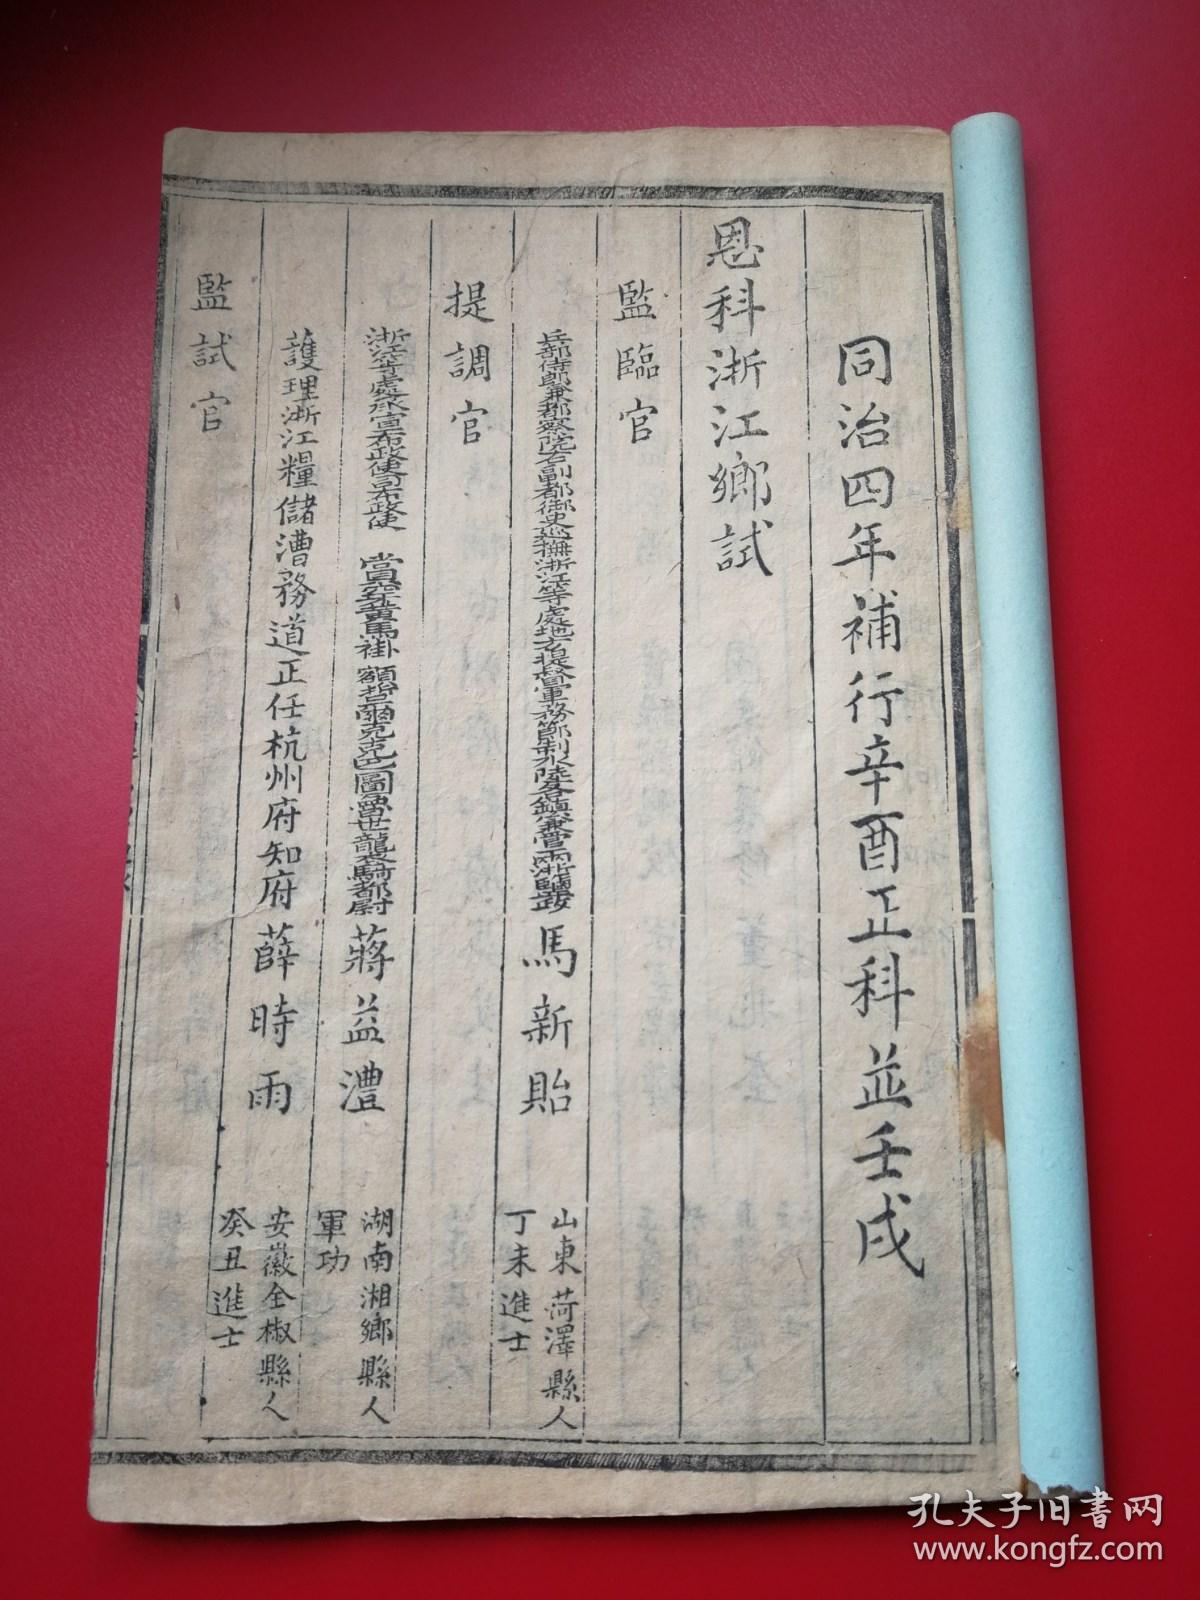 同治四年補行辛酉正科並壬戌
恩科浙江鄉試
監臨官
兵部侍郎兼都察院右副都御史巡撫浙江等處地方提督軍務節制水陸各鎮兼管兩浙鹽政 馬新貽 山東菏澤縣人
丁未進士
提調官
浙江等處承宣布政使司布政使 賞穿黃馬褂 額哲爾克巴圖魯世襲騎都尉 蔣益澧 湖南湘鄉縣人
軍功
護理浙江糧儲漕務道正任杭州府知府 薛時雨 安徽全椒縣人
癸丑進士
監試官
孔夫子旧书网
www.kongfz.com